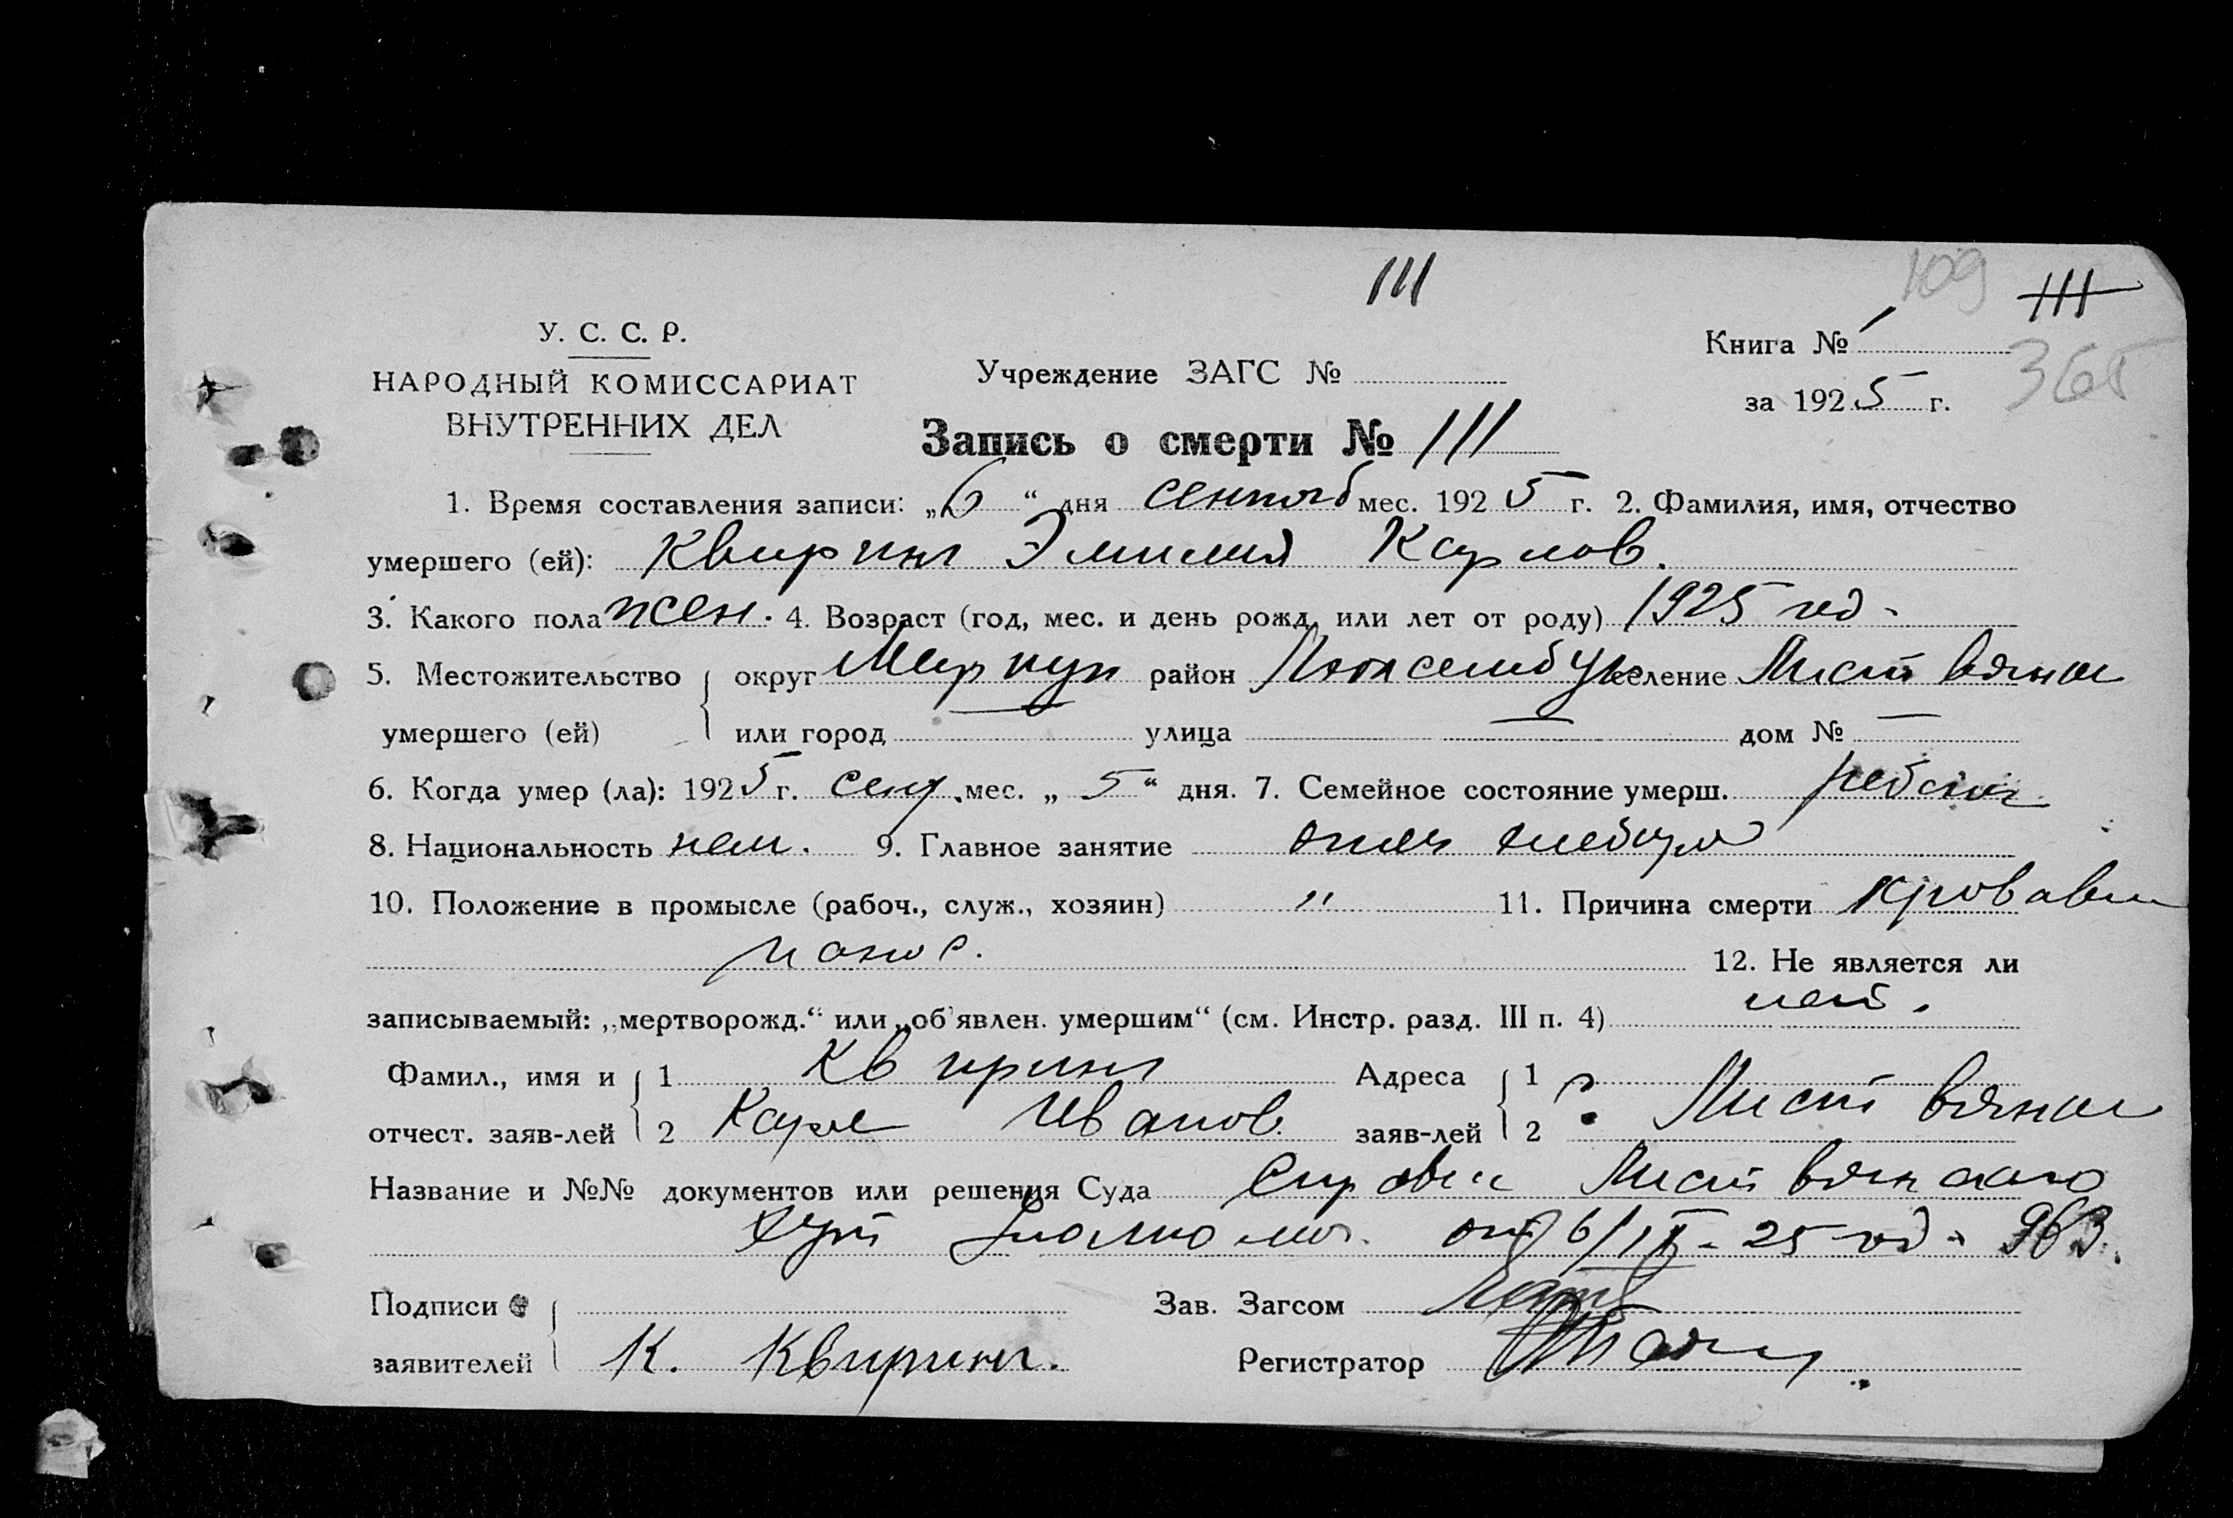 111
109 111
У. С. С. Р.
НАРОДНЫЙ КОМИССАРИАТ
ВНУТРЕННИХ ДЕЛ
Учреждение ЗАГС №
Книга № 1
365
за 1925 г.
Запись о смерти № 111
1. Время составления записи: „6“ дня сентяб мес. 1925 г. 2. Фамилия, имя, отчество
умершего (ей): Квиринг Эмилия Карлов.
3. Какого пола жен. 4. Возраст (год, мес. и день рожд. или лет от роду) 1925 год -
5. Местожительство округ Мариуп район Люксембу селение Листвянка
умершего (ей) или город — улица — дом № —
6. Когда умер (ла): 1925 г. сент. мес. „5“ дня. 7. Семейное состояние умерш. ребенок
8. Национальность нем. 9. Главное занятие отец хлебороб
10. Положение в промысле (рабоч., служ., хозяин) " 11. Причина смерти кровавый
понос. 12. Не является ли
записываемый: „мертворожд.“ или „об'явлен. умершим“ (см. Инстр. разд. III п. 4) нет.
Фамил., имя и 1 Квиринг Адреса 1
отчест. заяв-лей 2 Карл Иванов. заяв-лей 2 Листвянка
Название и №№ документов или решения Суда Справка Листвянского
хут от 6/IX - 25 год - 963.
Подписи Зав. Загсом
заявителей К. Квиринг. Регистратор